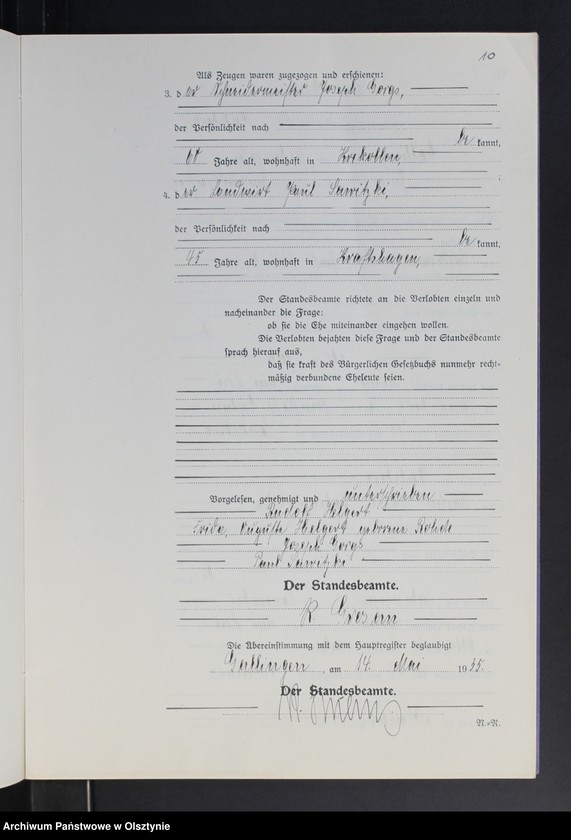 10
Als Zeugen waren zugezogen und erschienen:
3. der Schneidermeister Joseph Gorgs,
der Persönlichkeit nach
be kannt,
60 Jahre alt, wohnhaft in Krekollen,
4. der Landwirt Paul Sawitzki,
der Persönlichkeit nach
be kannt,
45 Jahre alt, wohnhaft in Kraftshagen,
Der Standesbeamte richtete an die Verlobten einzeln und
nacheinander die Frage:
ob sie die Ehe miteinander eingehen wollen.
Die Verlobten bejahten diese Frage und der Standesbeamte
sprach hierauf aus,
daß sie kraft des Bürgerlichen Gesetzbuchs nunmehr recht-
mäßig verbundene Eheleute seien.
Vorgelesen, genehmigt und unterschrieben
Helgert
Frida, Auguste Helgert geborene Rohde
Joseph Gorgs
Paul Sawitzki
Der Standesbeamte.
R.
Die Übereinstimmung mit dem Hauptregister beglaubigt
Gallingen, am 14. Mai 1935.
Der Standesbeamte.
N.=R.
Archiwum Państwowe w Olsztynie